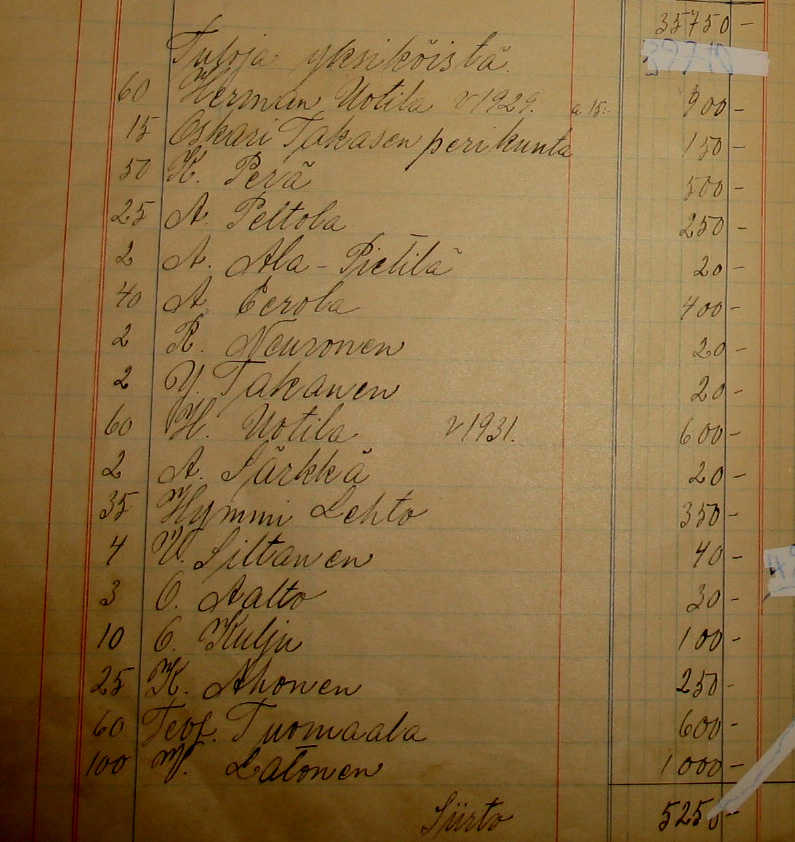 35750 -
Tuloja yksiköistä.
60 Herman Uotila v 1929. a 15:- 900 -
15 Oskari Takasen perikunta 150 -
50 K. Perä 500 -
25 A. Peltola 250 -
2 A. Ala-Pietilä 20 -
40 A. Eerola 400 -
2 R. Neuronen 20 -
2 Y. Takanen 20 -
60 H. Uotila v 1931. 600 -
2 A. Särkkä 20 -
35 Hymmi Lehto 350 -
4 V. Siltanen 40 -
3 O. Aalto 30 -
10 O. Kulju 100 -
25 K. Ahonen 250 -
60 Teof. Tuomaala 600 -
100 M. Latonen 1000 -
Siirto 5250 -